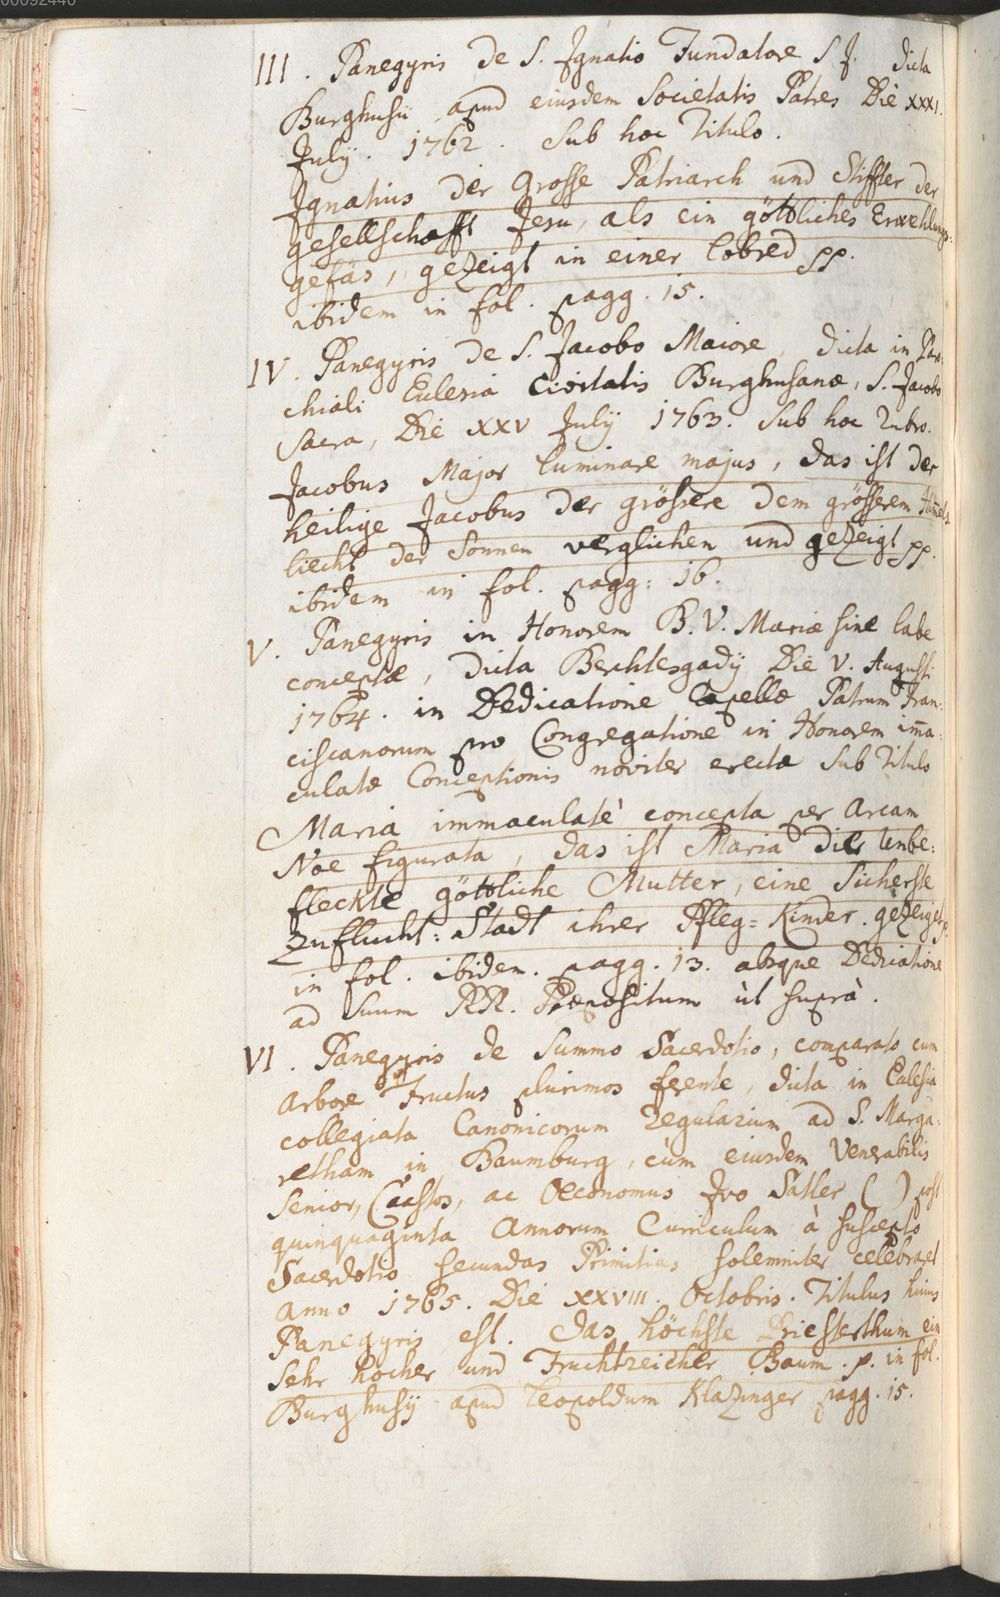 00092440
III. Panegyris de S. Ignatio Fundatore S. J. dicta
Burghusii apud eiusdem Societatis Patres Die XXXI.
July. 1762. Sub hoc Titulo.
Ignatius der Grosse Patriarch und Stiffter der
gesellschafft Jesu, als ein göttliches Erwehlungs:
gefäs, gezeigt in einer Lobred pp.
ibidem in fol. pagg. 15.
IV. Panegyris de S. Jacobo Maiore, dicta in Paro:
chiali Eclesia Civitatis Burghusanæ, S. Jacobo
Sacra, Die XXV July 1763. Sub hoc Rubro.
Jacobus Major luminare majus, das ist der
heilige Jacobus der grössere dem grösserem Him̄els
liecht der Sonnen verglichen und gezeigt pp.
ibidem in fol. pagg: 16.
V. Panegyris in Honorem B. V. Mariæ sine labe
conceptæ, dicta Berchtesgadij Die V. Augusti
1764. in Dedicatione Capellæ Patrum Fran:
ciscanorum pro Congregatione in Honorem im̄a:
culatæ Conceptionis noviter erectæ Sub Titulo
Maria immaculatè concepta per Arcam
Noe figurata, das ist Maria die Unbe:
fleckte göttliche Mutter, eine Sicherste
Zuflucht: Stadt ihrer Pfleg=Kinder. gezeiget p.
in fol. ibidem. pagg. 13. absque Dedicatione
ad Suum RR. Præpositum ùt suprà.
VI. Panegyris de Summo Sacerdotio, comparato cum
Arbore Fructus plurimos ferente, dicta in Eclesia
collegiata Canonicorum Regularium ad S. Marga:
retham in Baumburg, cùm eiusdem Venerabilis
Senior, ac Oeconomus Ivo Satler ( ) post
quinquaginta Annorum Curriculum à suscepto
Sacerdotio secundas Primitias solemniter celebraret
Anno 1765. Die XXVIII. Octobris. Titulus huius
Panegyris est. Das höchste Priesterthum ein
Sehr hocher und Fruchtreicher Baum. p. in fol.
Burghusij apud Leopoldum Klazinger pagg. 15.